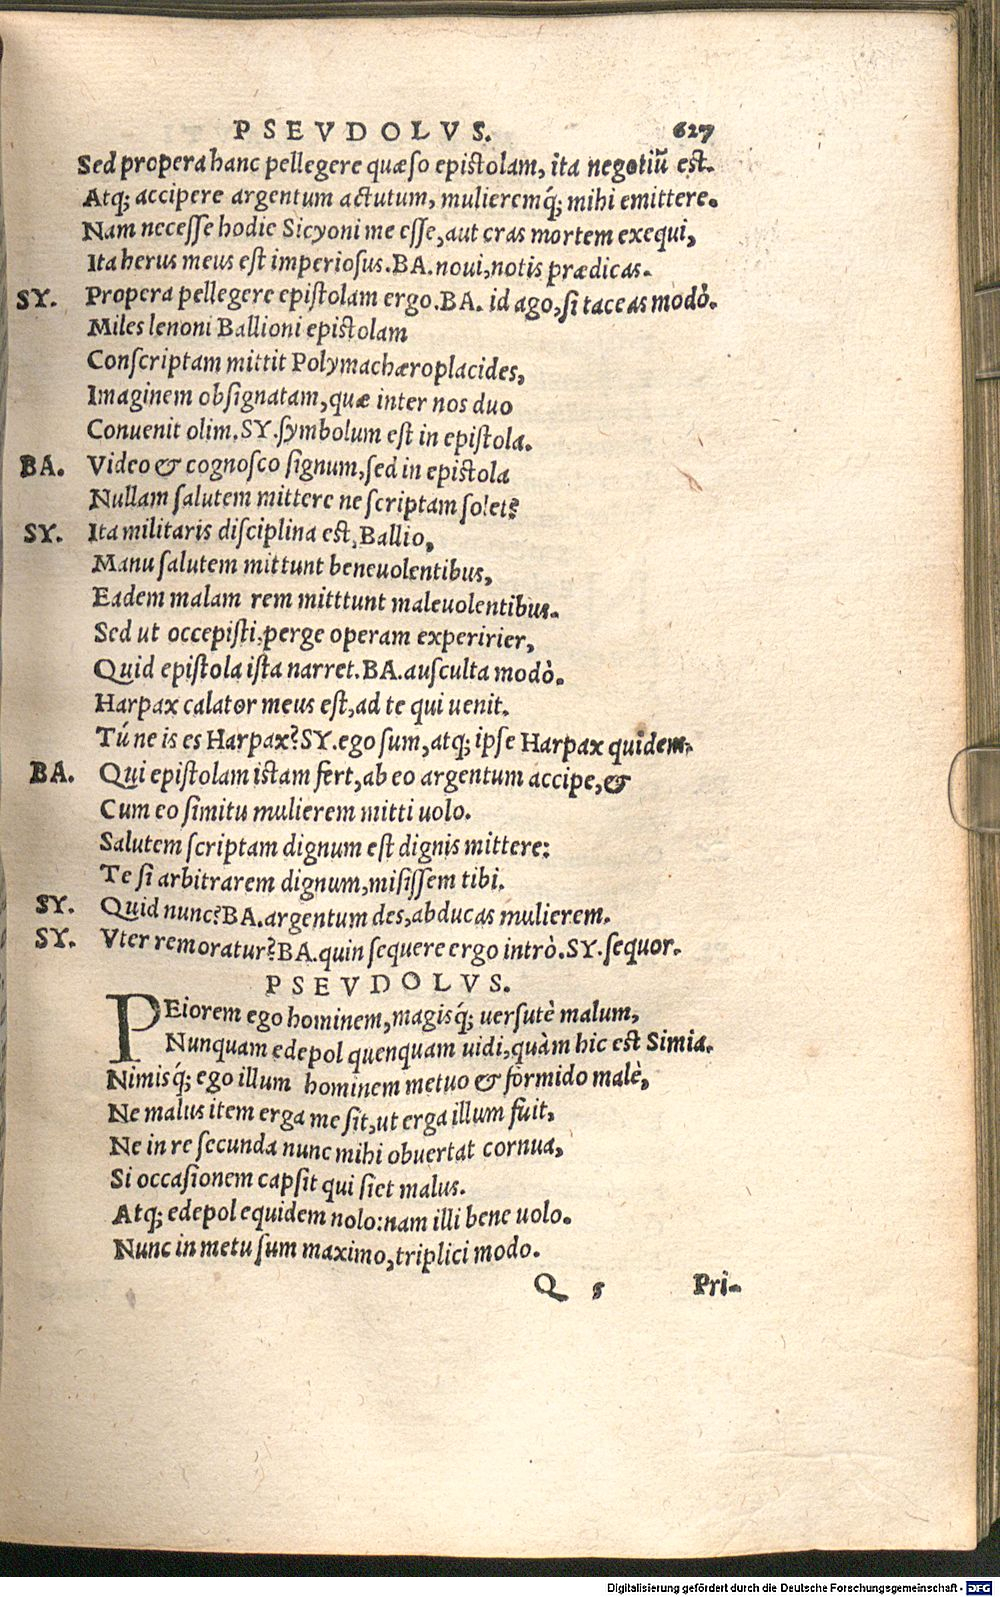 PSEVDOLVS. 627
Sed propera hanc pellegere quæso epistolam, ita negotiũ est.
Atq; accipere argentum actutum, mulieremq́; mihi emittere.
Nam necesse hodie Sicyoni me esse, aut cras mortem exequi,
Ita herus meus est imperiosus. BA. noui, notis prædicas.
SY. Propera pellegere epistolam ergo. BA. id ago, si taceas modò.
Miles lenoni Ballioni epistolam
Conscriptam mittit Polymachæroplacides,
Imaginem obsignatam, quæ inter nos duo
Conuenit olim. SY. symbolum est in epistola.
BA. Video & cognosco signum, sed in epistola
Nullam salutem mittere ne scriptam solet?
SY. Ita militaris disciplina est, Ballio,
Manu salutem mittunt beneuolentibus,
Eadem malam rem mitttunt maleuolentibus.
Sed ut occepisti, perge operam experirier,
Quid epistola ista narret. BA. ausculta modò.
Harpax calator meus est, ad te qui uenit.
Tú ne is es Harpax? SY. ego sum, atq; ipse Harpax quidem.
BA. Qui epistolam istam fert, ab eo argentum accipe, &
Cum eo simitu mulierem mitti uolo.
Salutem scriptam dignum est dignis mittere:
Te si arbitrarem dignum, misissem tibi.
SY. Quid nunc? BA. argentum des, abducas mulierem.
SY. Vter remoratur? BA. quin sequere ergo intrò. SY. sequor.
PSEVDOLVS.
PEiorem ego hominem, magisq́; uersutè malum,
Nunquam edepol quenquam uidi, quàm hic est Simia.
Nimisq́; ego illum hominem metuo & formido malè,
Ne malus item erga me sit, ut erga illum fuit,
Ne in re secunda nunc mihi obuertat cornua,
Si occasionem capsit qui siet malus.
Atq; edepol equidem nolo: nam illi bene uolo.
Nunc in metu sum maximo, triplici modo.
Q 5 Pri-
Digitalisierung gefördert durch die Deutsche Forschungsgemeinschaft - DFG